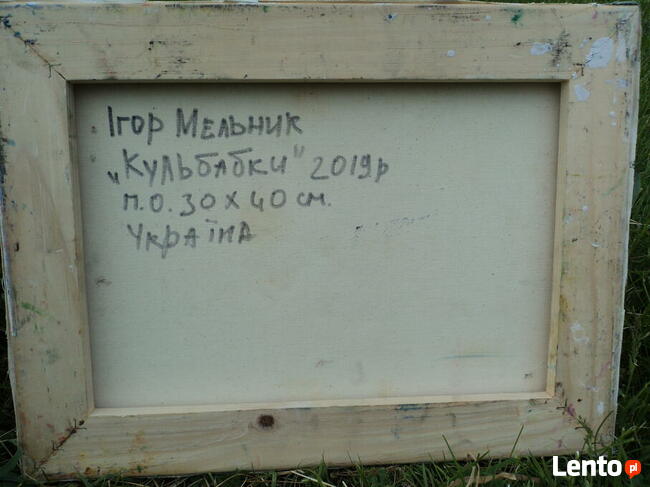 Ігор Мельник
„Кульбабки" 2019р
п.о. 30 х 40 см.
Україна
Lento.pl